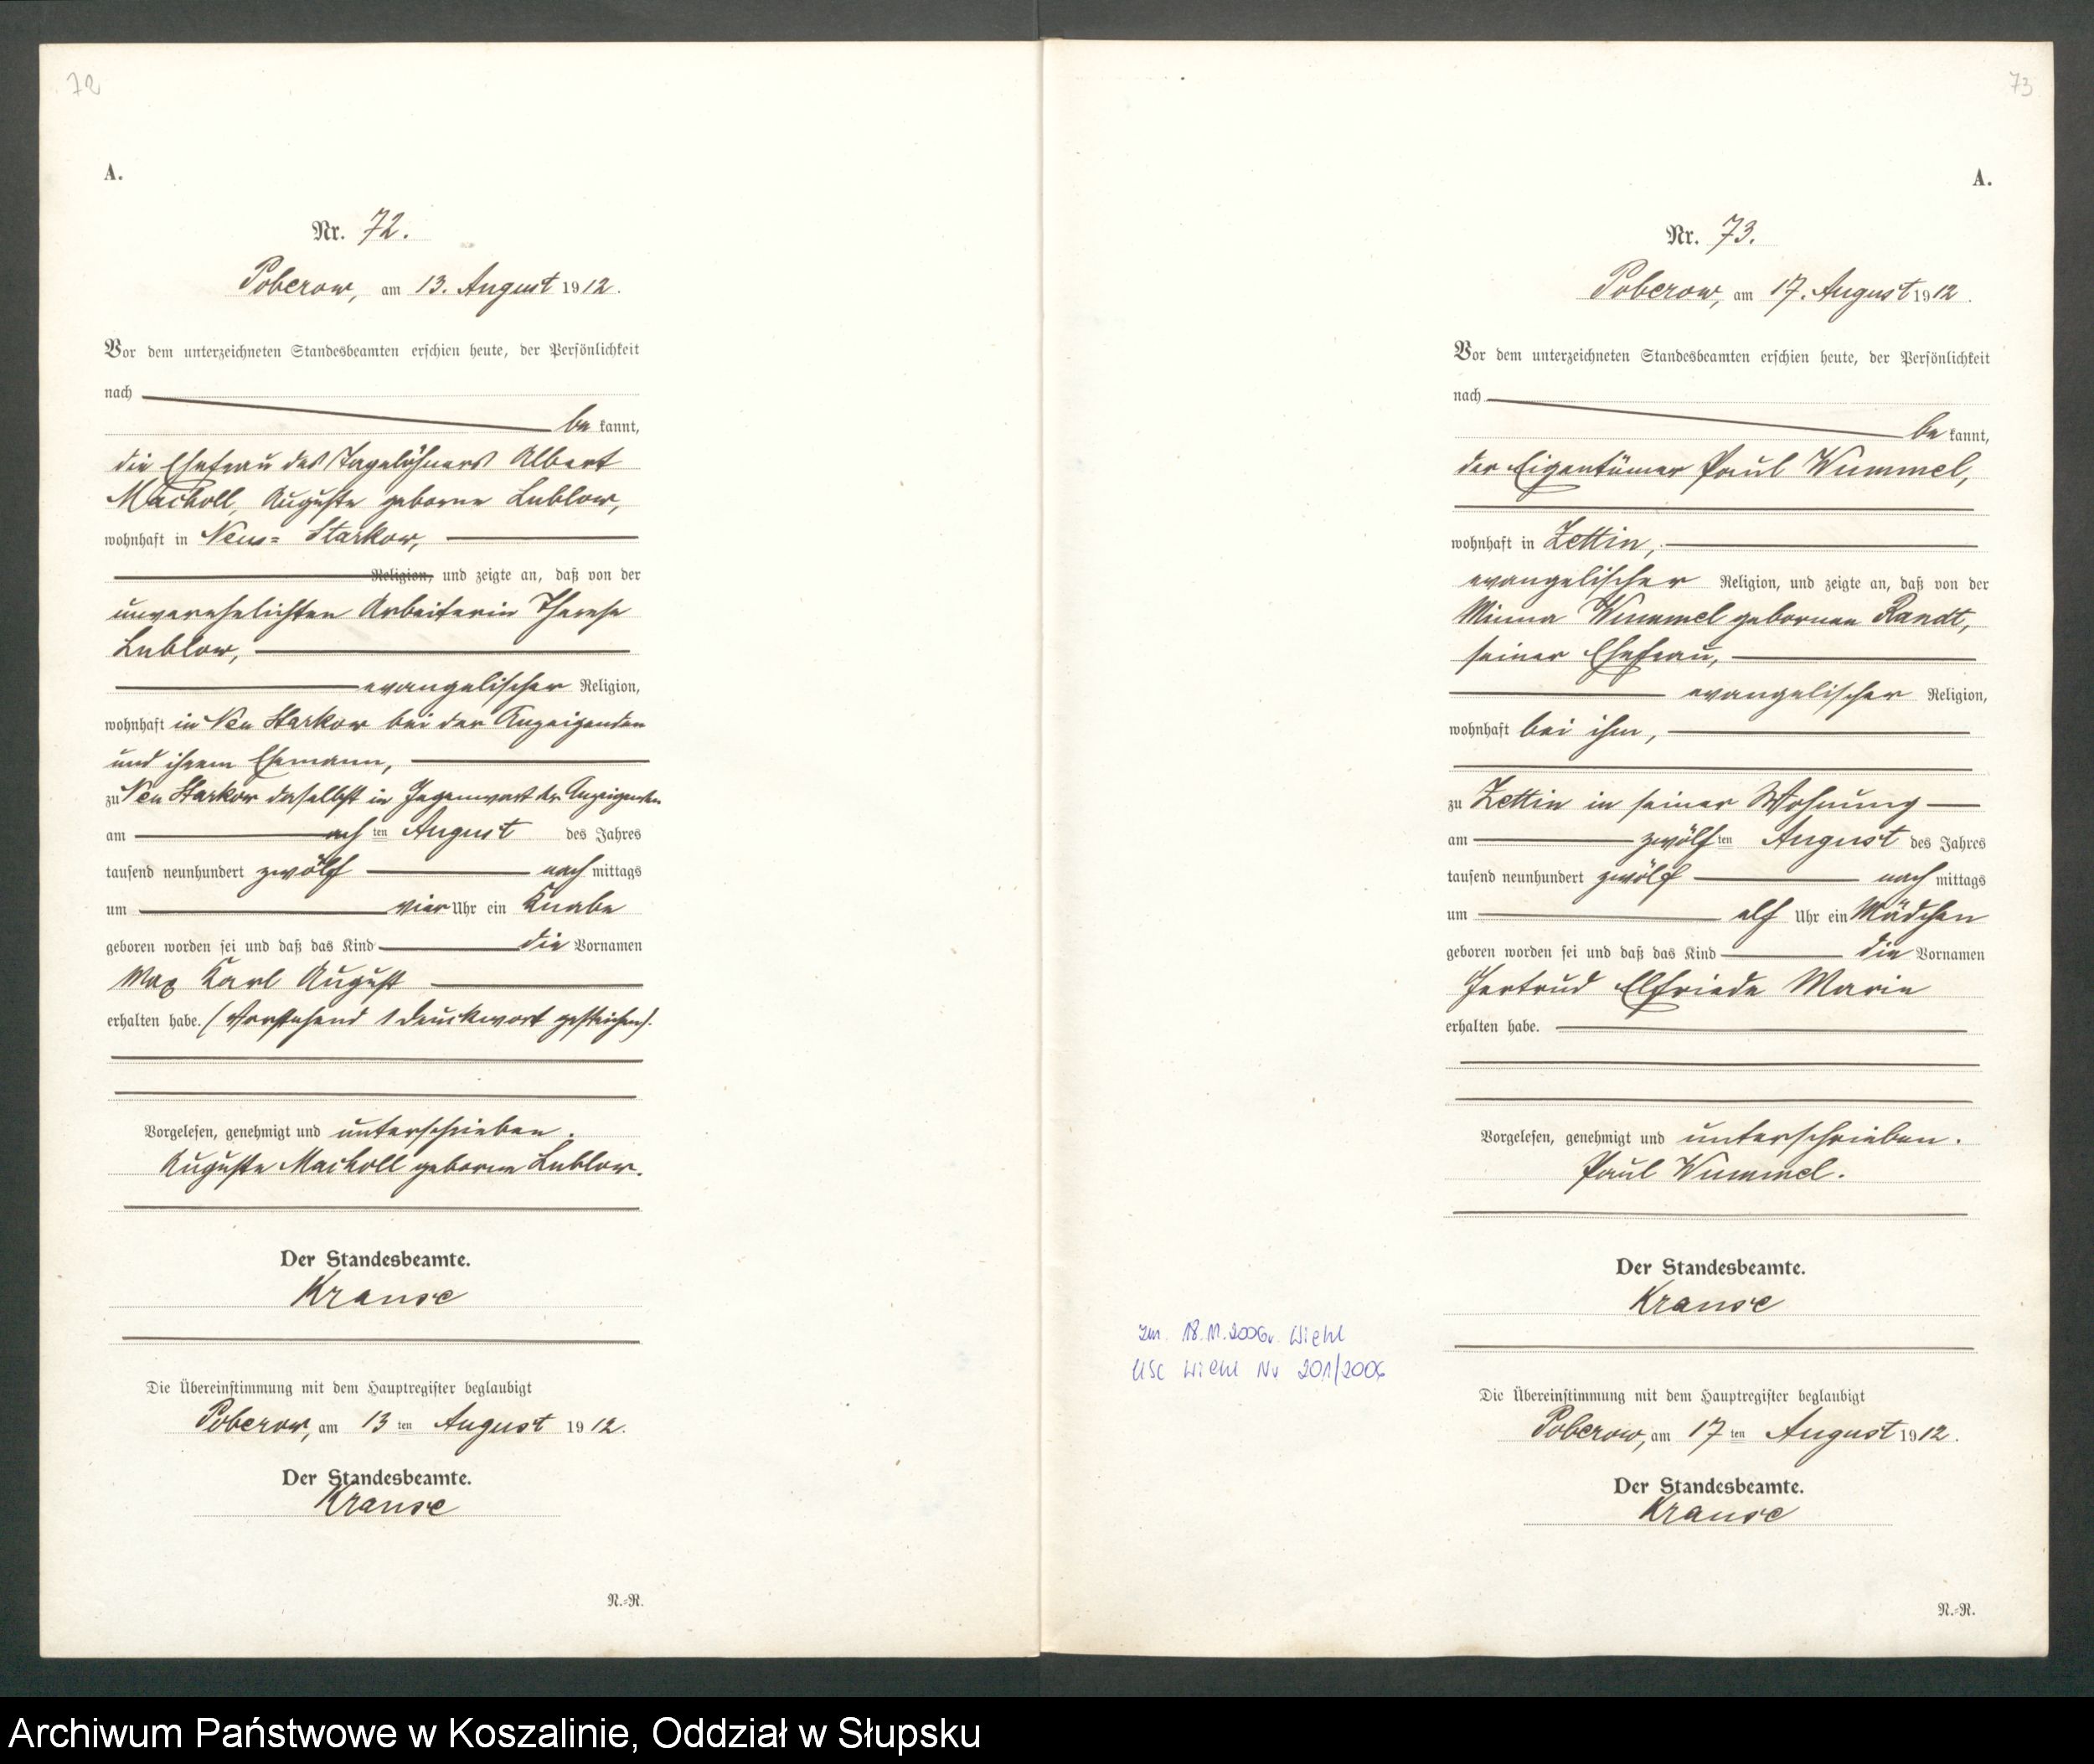 72
A.
Nr. 72.
Poberow, am 13. August 1912.
Vor dem unterzeichneten Standesbeamten erschien heute, der Persönlichkeit
nach
be kannt,
die Ehefrau des Tagelöhners Albert
Macholl, Auguste geborne Lublow,
wohnhaft in Neu-Starkow,
Religion, und zeigte an, daß von der
unverehelichten Arbeiterin Therese
Lublow,
evangelischer Religion,
wohnhaft in Neu Starkow bei der Anzeigenden
und ihrem Ehemann,
zu Neu Starkow daselbst in Gegenwart der Anzeigenden
am ach ten August des Jahres
tausend neunhundert zwölf nach mittags
um vier Uhr ein Knabe
geboren worden sei und daß das Kind die Vornamen
Max Karl August
erhalten habe. (Vorstehend 1 Druckwort gestrichen).
Vorgelesen, genehmigt und unterschrieben.
Auguste Macholl geborne Lublow.
Der Standesbeamte.
Krause
Die Übereinstimmung mit dem Hauptregister beglaubigt
Poberow, am 13 ten August 1912.
Der Standesbeamte.
Krause
N.=R.
73
A.
Nr. 73.
Poberow, am 17. August 1912.
Vor dem unterzeichneten Standesbeamten erschien heute, der Persönlichkeit
nach
be kannt,
der Eigentümer Paul Wummel,
wohnhaft in Zettin,
evangelischer Religion, und zeigte an, daß von der
Minna Wummel gebornen Randt,
seiner Ehefrau,
evangelischer Religion,
wohnhaft bei ihm,
zu Zettin in seiner Wohnung
am zwölf ten August des Jahres
tausend neunhundert zwölf nach mittags
um elf Uhr ein Mädchen
geboren worden sei und daß das Kind die Vornamen
Gertrud Elfriede Marie
erhalten habe.
Vorgelesen, genehmigt und unterschrieben.
Paul Wummel.
Der Standesbeamte.
Krause
zm. 18.11.2006r. Wiehl
USC Wiehl Nr 201/2006
Die Übereinstimmung mit dem Hauptregister beglaubigt
Poberow, am 17 ten August 1912.
Der Standesbeamte.
Krause
N.=R.
Archiwum Państwowe w Koszalinie, Oddział w Słupsku